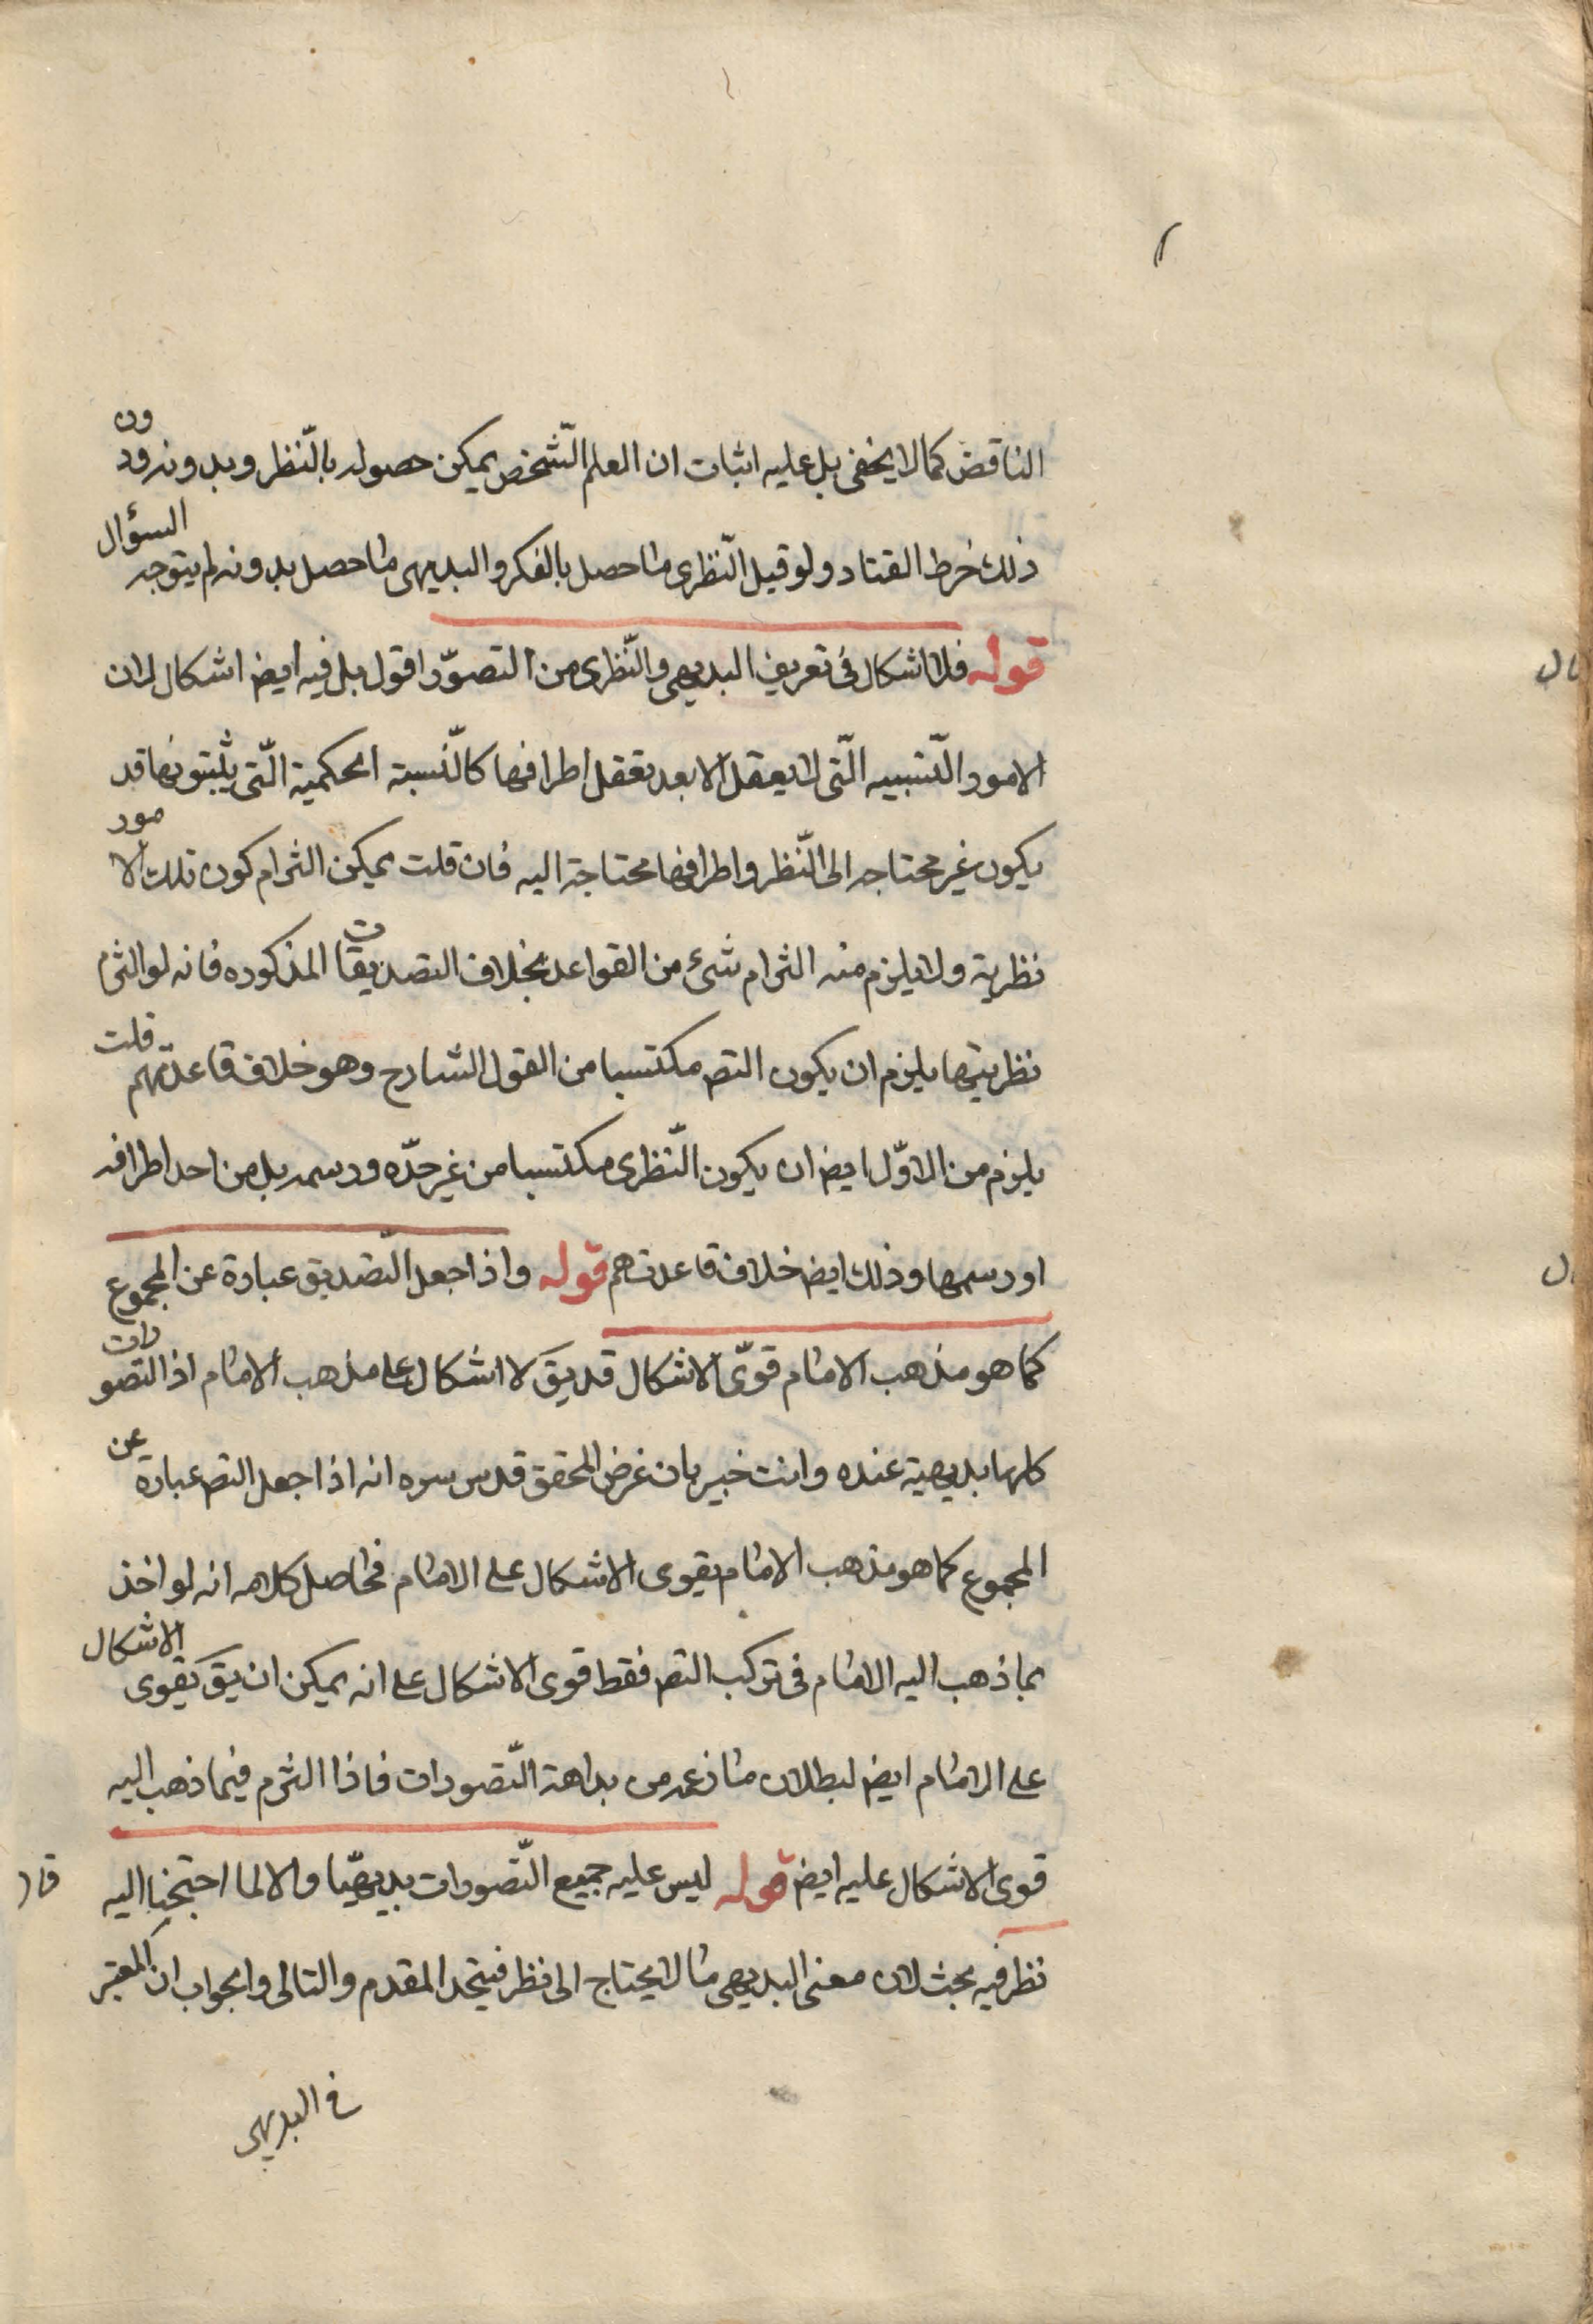 الناقض كما لا يخفى بل عليه اثبات ان العلم الشّخص يمكن حصوله بالنّظر وبدونه ودون
ذلك خرط القتاد ولو قيل النّظرى ما حصل بالفكر والبديهى ما حصل بدونه لم يتوجه السؤال
قوله فلا اشكال فى تعريف البديهى والنّظرى من التصوّر اقول بل فيه ايض اشكال لان
الامور النّسبيه الّتى لا يعقل الا بعد تعقل اطرافها كالنّسبة الحكمية الّتى يثبتونها قد
يكون غير محتاجه الى النّظر واطرافها محتاجة اليه فان قلت يمكن التزام كون تلك الامور
نظرية ولا يلزم منه التزام شئ من القواعد بخلاف التصديقات المذكوره فانه لو التزم
نظريتها يلزم ان يكون التص مكتسبا من القول الشارح وهو خلاف قاعدتهم قلت
يلزم من الاوّل ايض ان يكون النّظرى مكتسبا من غير حدّه ورسمه بل من احد اطرافه
او رسمها وذلك ايض خلاف قاعدتهم قوله واذا جعل التّصديق عبارة عن المجموع
كما هو مذهب الامام قوّى الاشكال قد يق لا اشكال على مذهب الامام اذ التصورات
كلها بديهية عنده وانت خبير بان غرض المحقق قدس سره انه اذا جعل التص عبارة عن
المجموع كما هو مذهب الامام يقوى الاشكال على الامام فحاصل كلامه انه لو اخذ
بما ذهب اليه الامام فى تركب التص فقط قوى الاشكال على انه يمكن ان يق يقوى الاشكال
على الامام ايض لبطلان ما زعمه من بداهة التّصورات فاذا التزم فيما ذهب اليه
قوى الاشكال عليه ايض قوله ليس عليه جميع التّصورات بديهيّا والا لما احتجنا اليه
نظر فيه بحث لان معنى البديهى ما لا يحتاج الى نظر فيتحد المقدم والتالى والجواب ان المعتبر
فى البديهى